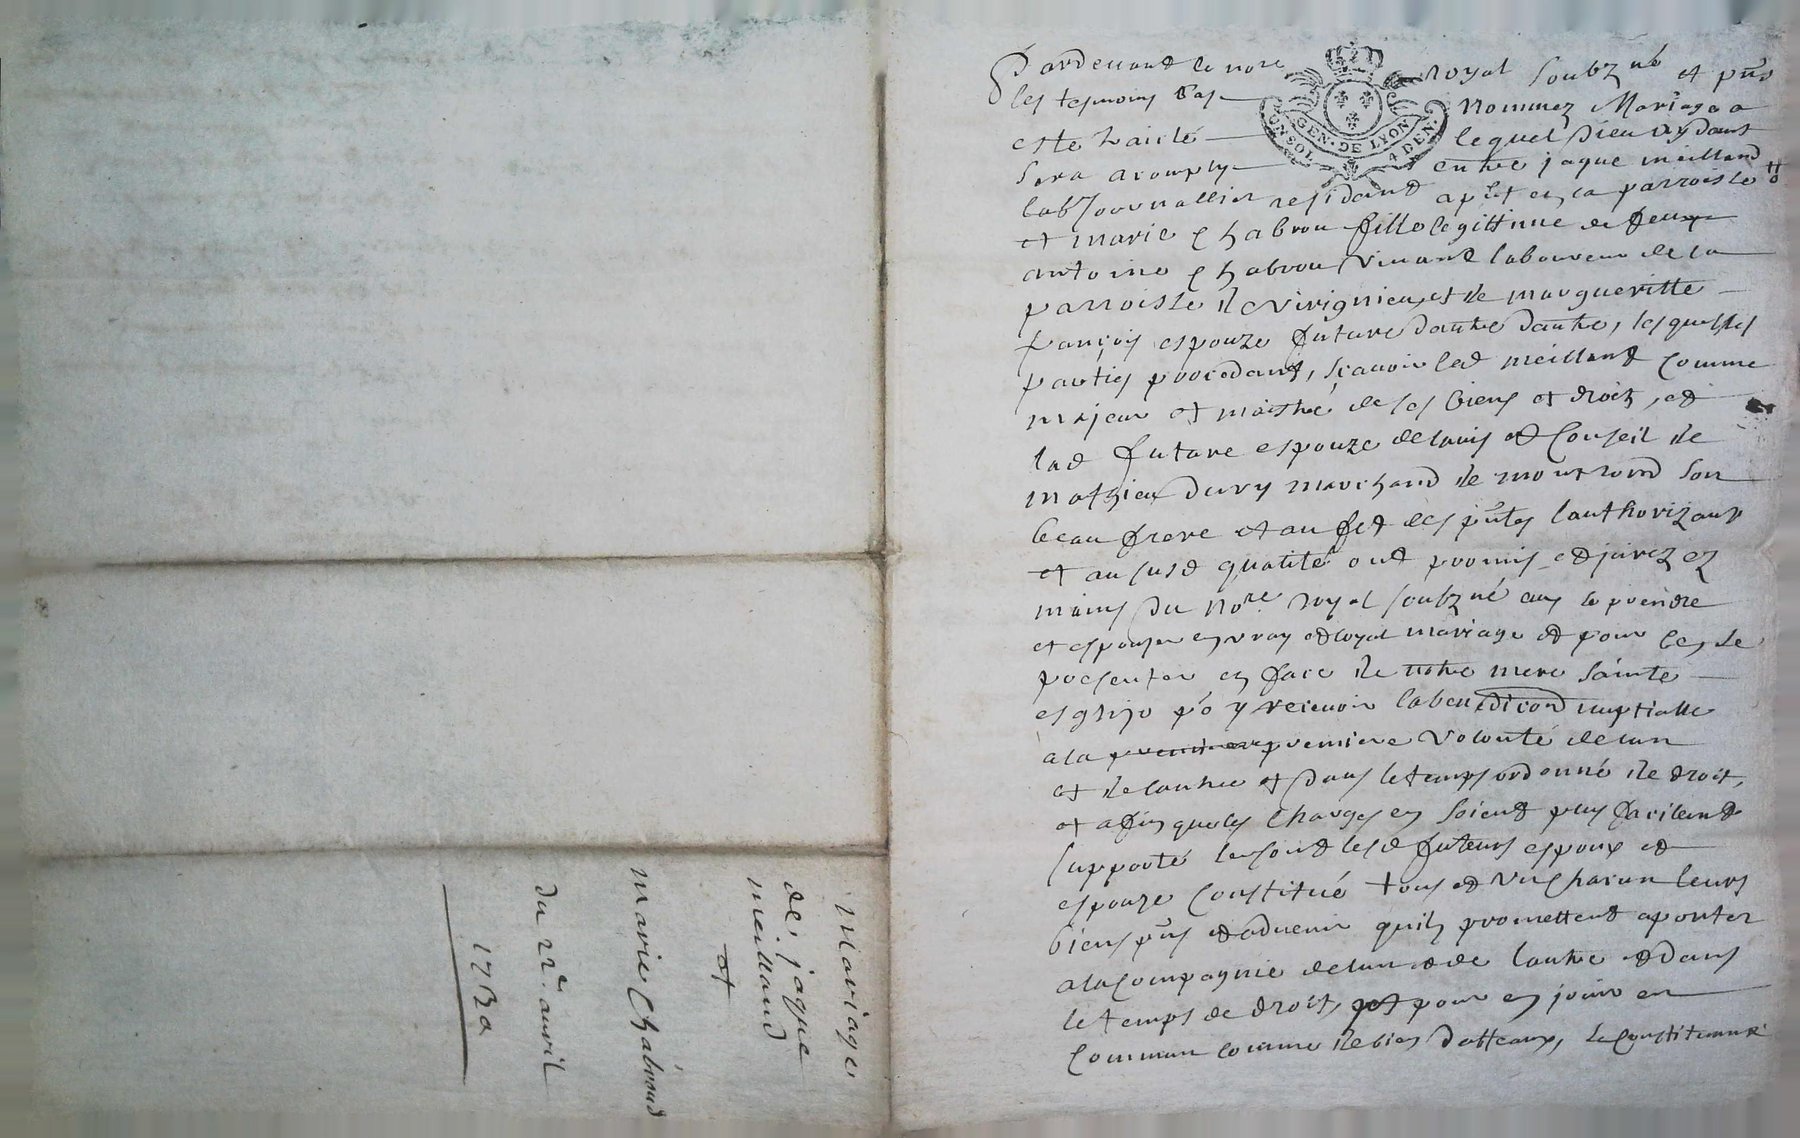 Pardevant le no.re royal soubz.né et p.nts
les tesmoins bas nommez Mariage a
este traicté lequel Dieu aydant
sera acomply entre jaque meilland
lab.r journallier residant a p.nt en ca parroisse
et marie Chabrou fille legittime de feux
antoine Chabrou vivant laboureur de la
parroisse de Virignieu, et de margueritte
françois espouze future dautre dautre, lesquelles
parties procedant, sçavoir led meilland comme
majeur et maistre de ses biens et droits, et
lad future espouze de lavis et Conseil de
mathieu Dury marchand de montrond son
beau frere et au fet des p.ntes lauthorizant
et au susd qualité ont promis et jurez ez
mains du No.re royal soubz.né eux prendre
et espouser en vray et loyal mariage et pour ce, se
presenter en face de notre mere sainte
esglize po.r y recevoir la benediction nuptialle
a la premiere volonté de lun
et de lautre et dans le temps ordonné de droit,
et afin que les charges en soient plus facilem.t
supporté se sont lesd futeurs espoux et
espouze constitué tous et un chacun leurs
biens p.nts et advenir quils promettent aporter
a la compagnie de lun et de lautre et dans
le temps de droit, pour en jouir en
commun comme de bien dotteaux, se constituant
GEN. DE LYON
UN SOL 4 DEN.
Mariage
de jaque
meilland
et
marie Chabroud
du 22e. avril
1730